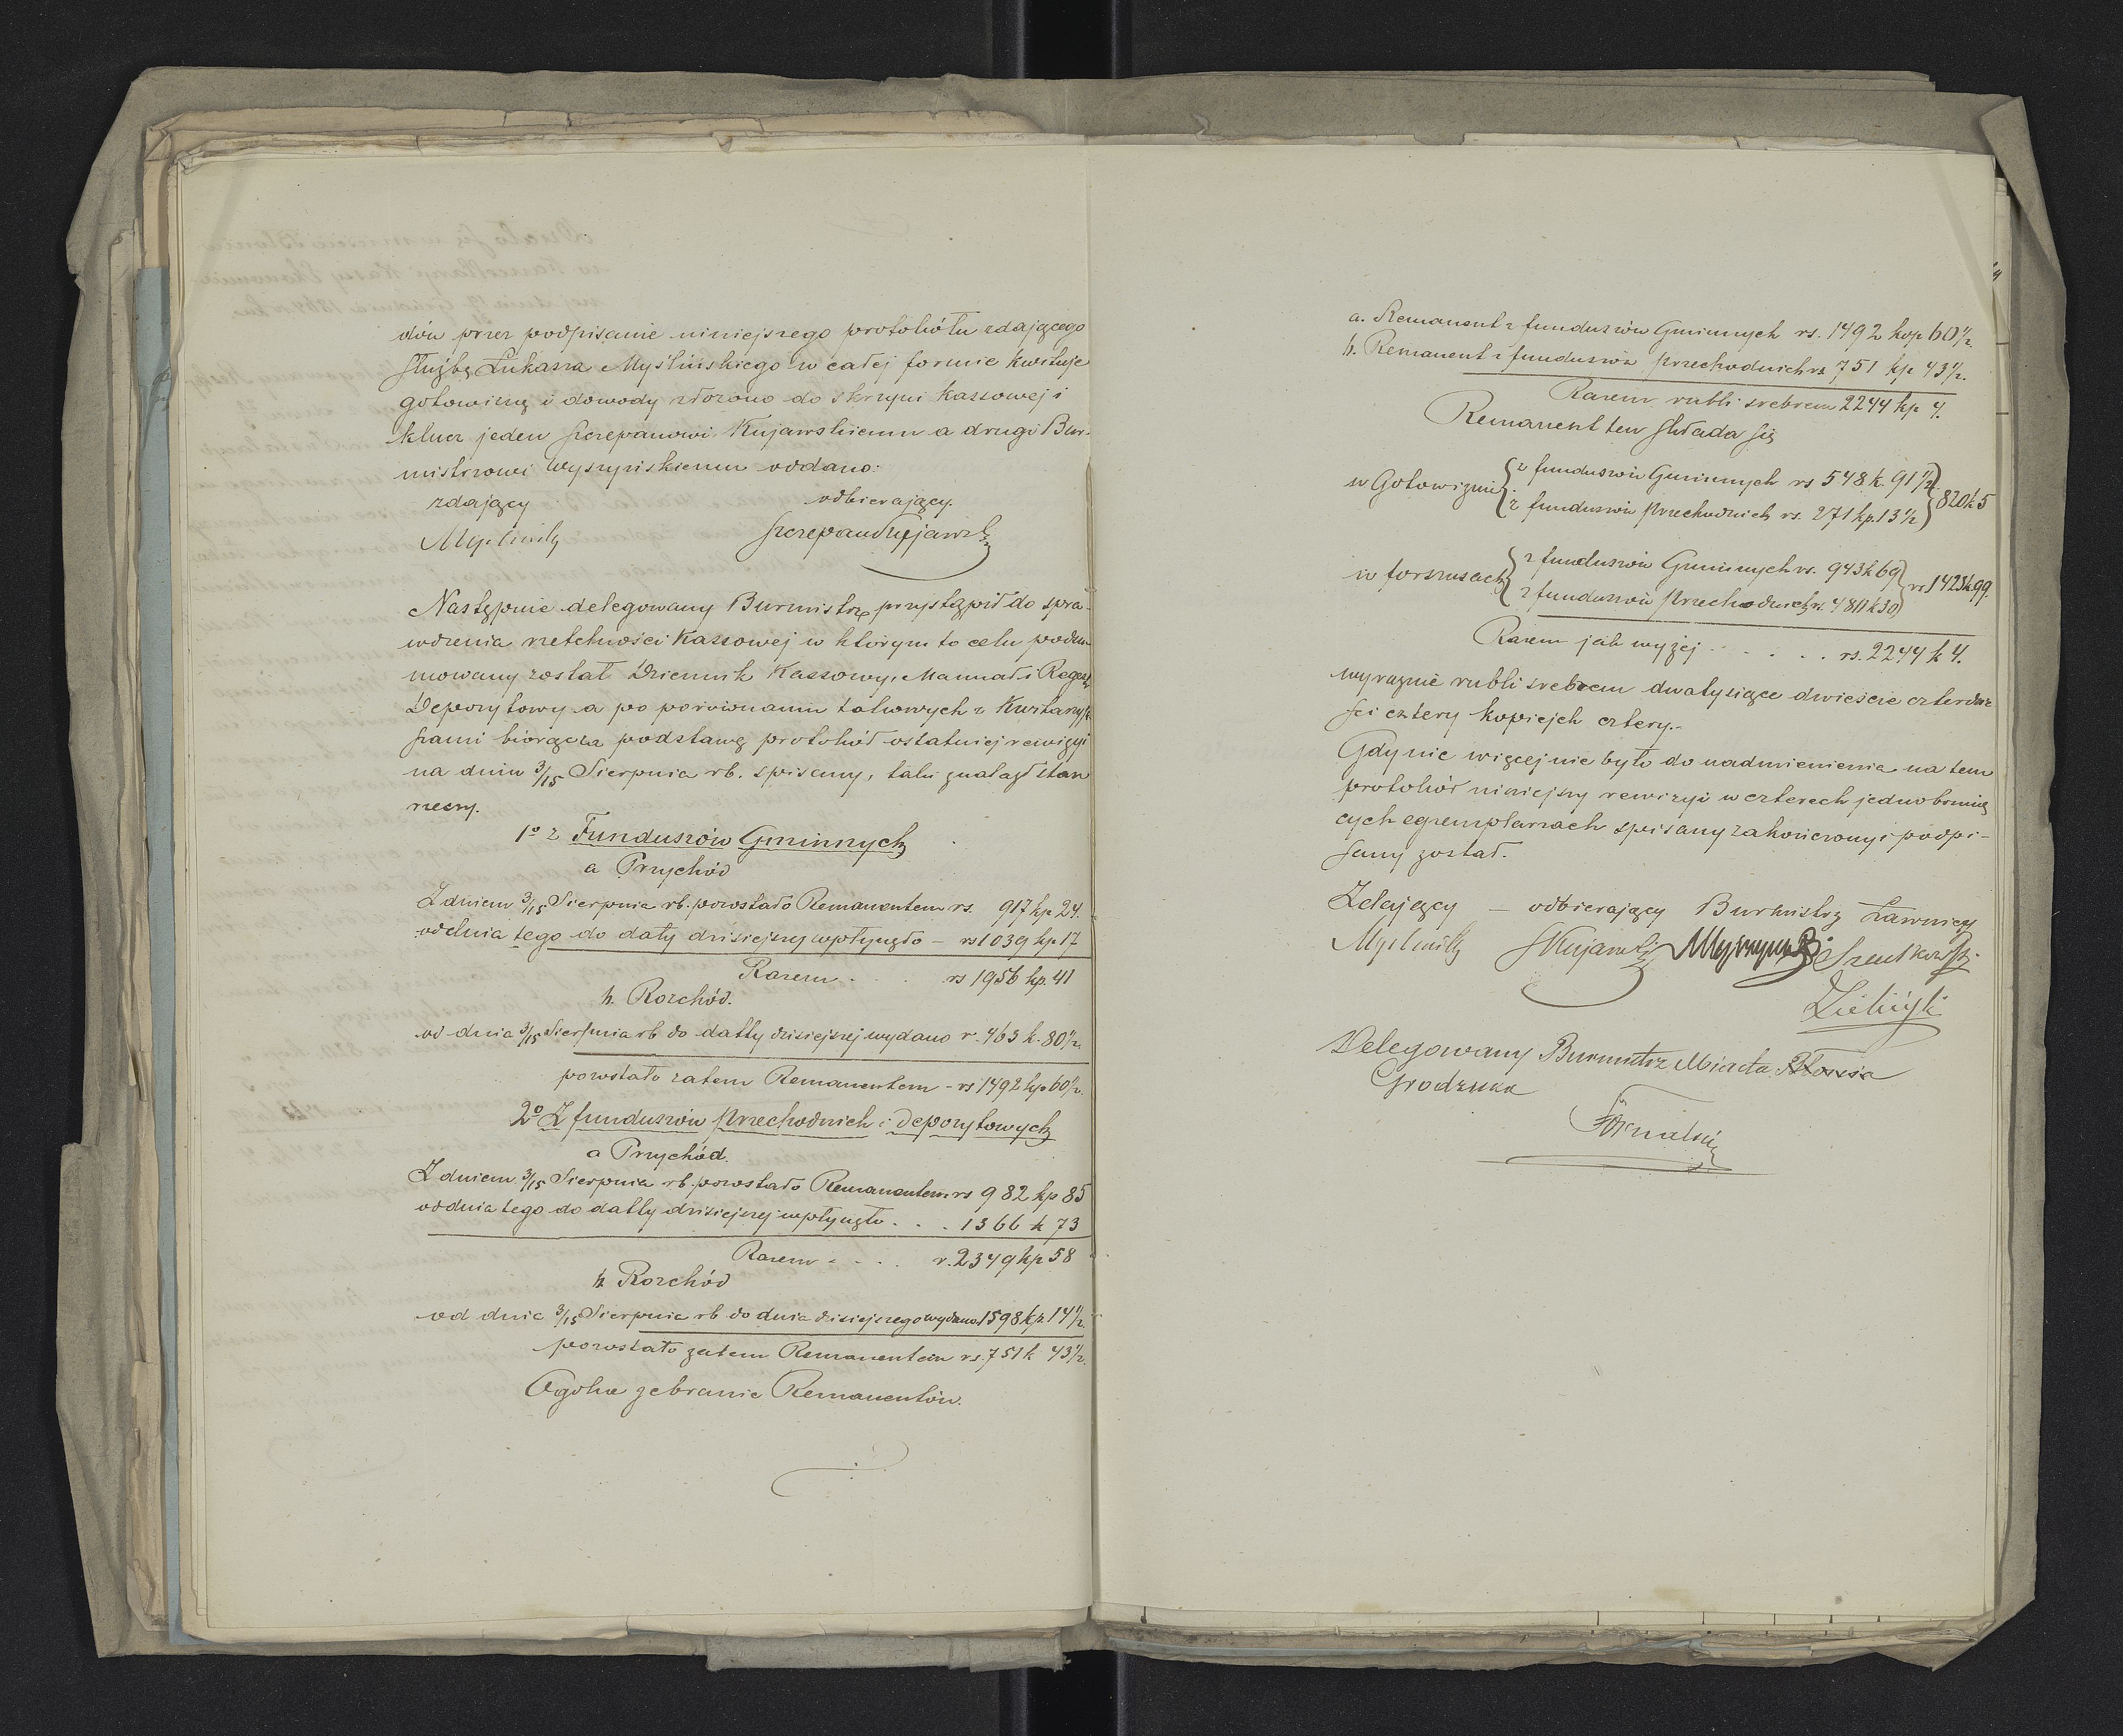 dów przez podpisanie niniejszego protokółu zdającego
służbę Łukasza Myślińskiego w całej formie kwituje
gotowiznę i dowody złożono do skrzyni kassowej i
klucz jeden Szczepanowi Kujawskiemu a drugi Bur-
mistrzowi Wyszyńskiemu oddano.
zdający odbierający.
Myśliński Szczepan Kujawski
Następnie delegowany Burmistrz przystąpił do spra-
wdzenia rzetelności kassowej w którym to celu podsu-
mowany został Dziennik Kassowy, Manuał i Regestr
Depozytowy a po porównaniu takowych z Kwitaryu-
szami biorąc za podstawę protokół ostatniej rewizyi
na dniu 3/15 Sierpnia rb. spisany, taki znalazł stan
rzeczy.
1º z Funduszów Gminnych
a Przychód
Z dniem 3/15 Sierpnia rb. pozostało Remanentem rs. 917 kp 24.
od dnia tego do daty dzisiejszej wpłynęło – rs 1039 kp 17
Razem . . . rs 1956 kp. 41
b. Rozchód.
od dnia 3/15 Sierpnia rb do datty dzisiejszej wydano r. 463 k. 80½.
pozostało zatem Remanentem – rs 1492 kp 60½.
2º Z funduszów przechodnich i depozytowych
a Przychód.
Z dniem 3/15 Sierpnia rb. pozostało Remanentem rs 982 kp 85
od dnia tego do datty dzisiejszej wpłynęło . . . 1366 k 73
Razem . . . . r. 2349 kp 58
b Rozchód
od dnia 3/15 Sierpnia rb do dnia dzisiejszego wydano 1598 kp. 14½.
pozostało zatem Remanentem rs. 751 k 43½.
Ogólne zebranie Remanentów.
a. Remanent z funduszów Gminnych rs. 1492 kop 60½.
b. Remanent z funduszów przechodnich rs 751 kp 43½.
Razem rubli srebrem 2244 kp 4.
Remanent ten składa się
z funduszów Gminnych rs 548 k. 91½
w Gotowiznie 820 k 5
z funduszów przechodnich rs. 271 kp. 13½
z funduszów Gminnych rs. 943 k 69
w forszusach rs 1423 k 99.
z funduszów przechodnich r. 480 k 30
Razem jak wyżej . . . . . . rs. 2244 k 4.
wyraznie rubli srebrem dwa tysiące dwieście czterdzie
ści cztery kopiejek cztery.
Gdy nic więcej nie było do nadmienienia na tem
protokół niniejszy rewizyi w czterech jednobrzmią
cych egzemplarzach spisany zakończony i podpi-
sany został.
Zdający – odbierający Burmistrz Ławnicy
Myśliński SKujawski Wyszyński Szentkowski
Zieliński
Delegowany Burmistrz Miasta Błonia
Grodziska